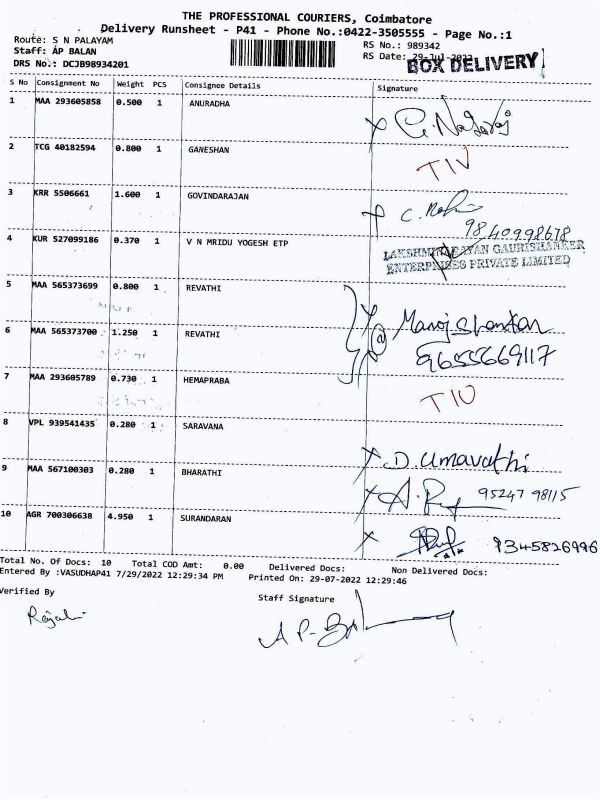 THE PROFESSIONAL COURIERS, Coimbatore
Delivery Runsheet - P41 - Phone No.:0422-3505555 - Page No.:1
Route: S N PALAYAM
RS No.: 989342
Staff: AP BALAN
RS Date: 29-Jul-2022
BOX DELIVERY
DRS No.: DCJB98934201
S No Consignment No Weight PCS Consignee Details Signature
1 MAA 293605858 0.500 1 ANURADHA G. Nagaraj
2 TCG 40182594 0.800 1 GANESHAN TIV
3 KRR 5506661 1.600 1 GOVINDARAJAN C.
9840998678
4 KUR 527099186 0.370 1 V N MRIDU YOGESH ETP
LAKSHMINARAYAN GAURISHANKER
ENTERPRISES PRIVATE LIMITED
5 MAA 565373699 0.800 1 REVATHI
Manoj
6 MAA 565373700 1.250 1 REVATHI
9655669117
7 MAA 293605789 0.730 1 HEMAPRABA TIV
8 VPL 939541435 0.280 1 SARAVANA
D. Umavathi
9 MAA 567100303 0.280 1 BHARATHI
95247 98115
10 AGR 700306638 4.950 1 SURANDARAN
9345826996
Total No. Of Docs: 10 Total COD Amt: 0.00 Delivered Docs: Non Delivered Docs:
Entered By :VASUDHAP41 7/29/2022 12:29:34 PM Printed On: 29-07-2022 12:29:46
Verified By
Staff Signature
A P-